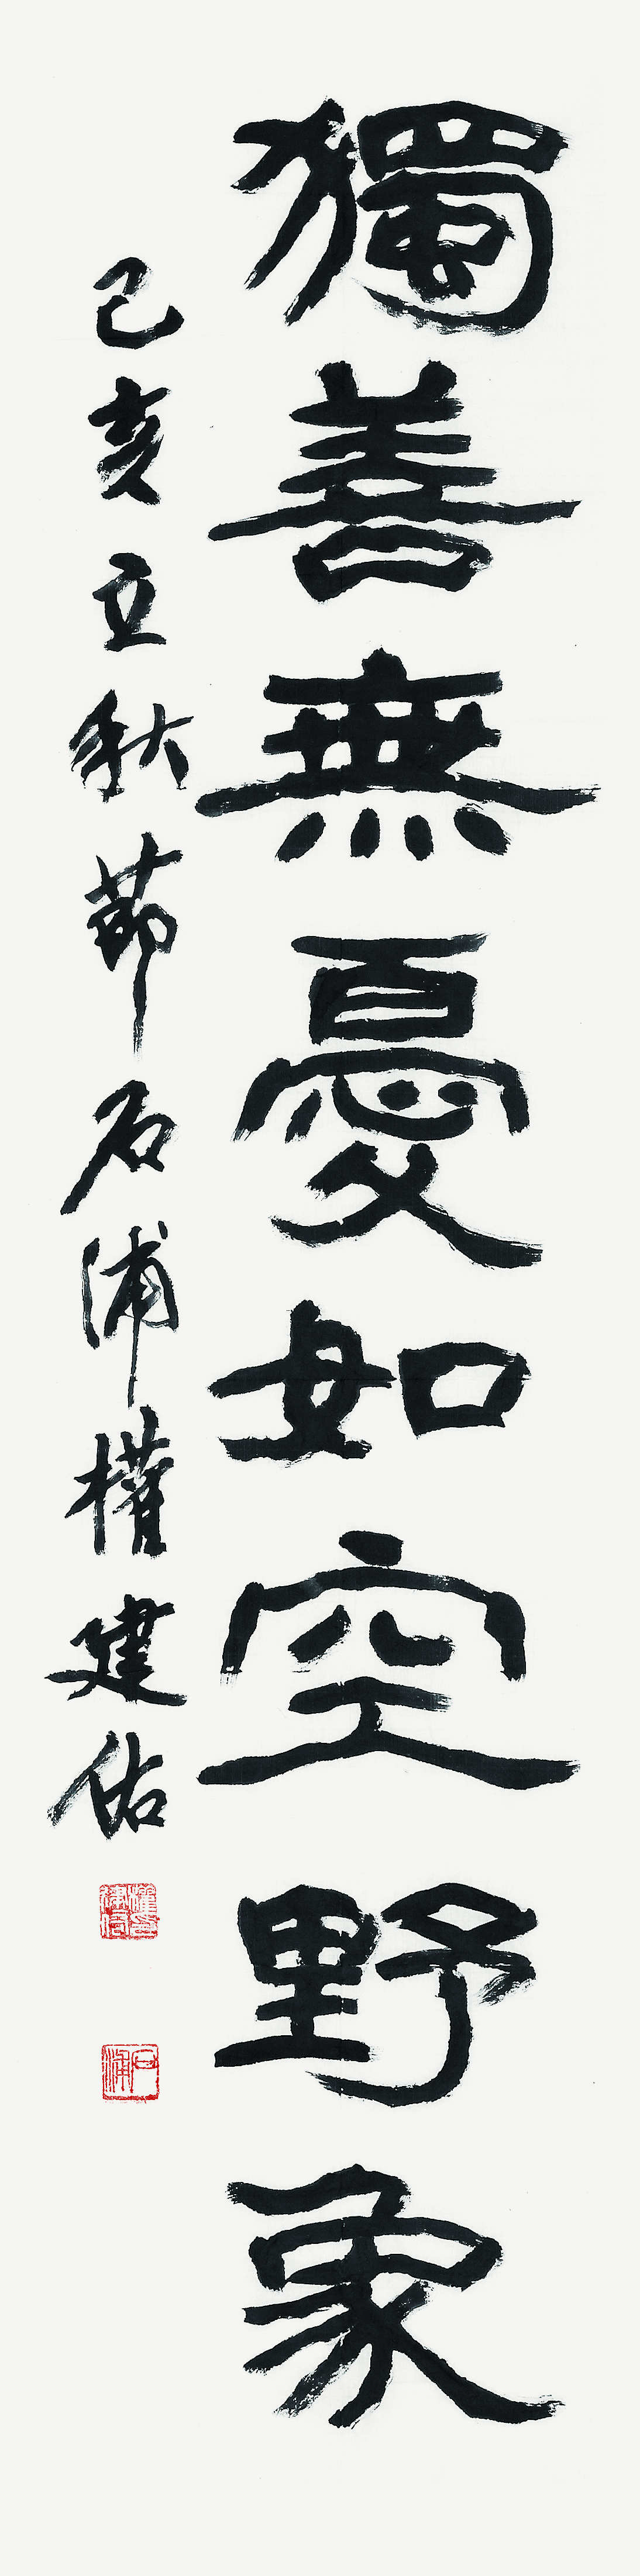 獨善無憂如空野象
己亥立秋節石浦權建佑
石浦